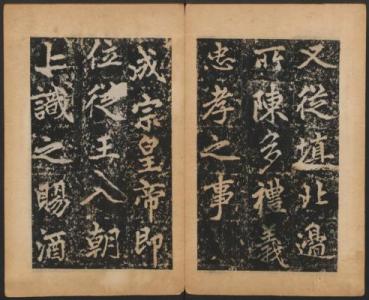 又從鎮北邊
所陳多禮義
忠孝之事
成宗皇帝即
位從王入朝
上識之賜酒